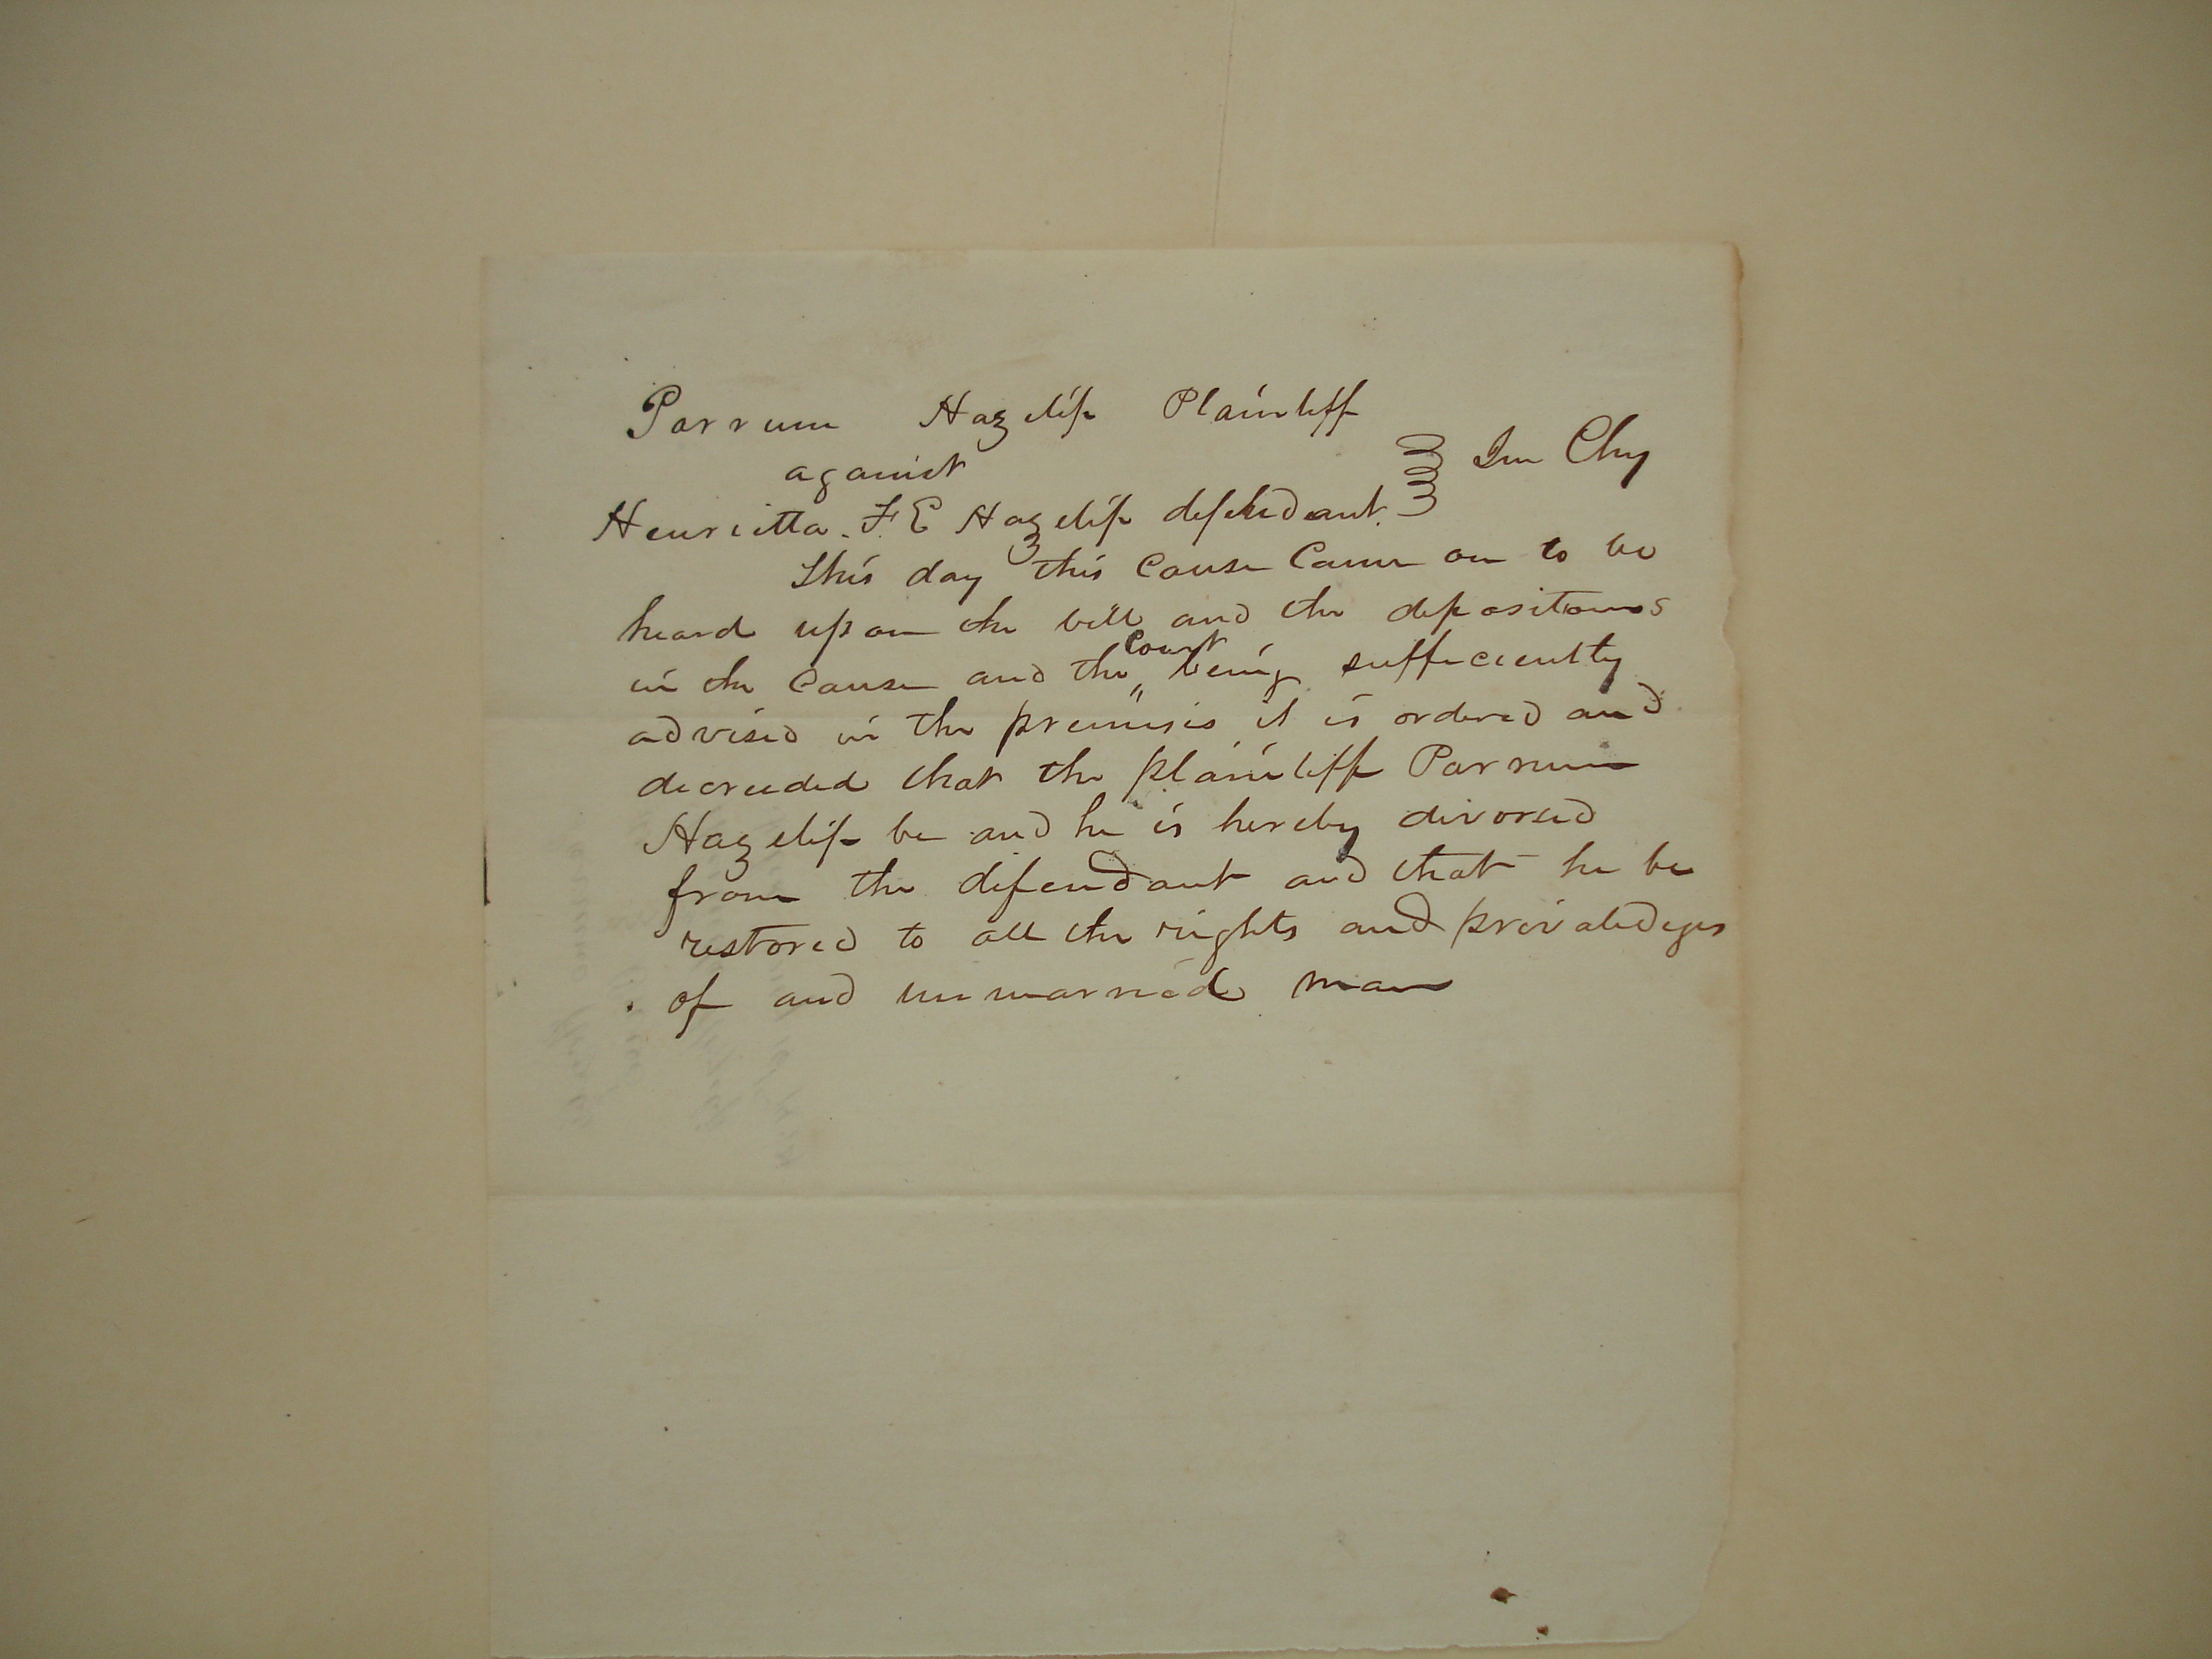 Parrum Hazelip Plaintiff
against
In Chy
Henrietta. F. E Hazelip defendant.
This day this Cause Came on to be
heard upon the bill and the depositions
Court
in the Cause and the " being sufficiently
advised in the premises it is ordered and
decreeded that the plaintiff Parrum
Hazelip be and he is hereby divorsed
from the difendant and that he be
restored to all the rights and privaledges
of and unmarried man